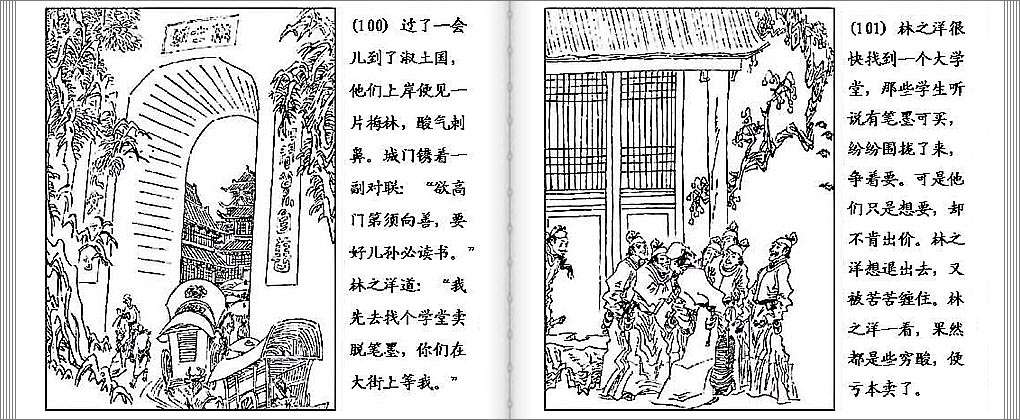 (100) 过了一会
儿到了淑土国，
他们上岸便见一
片梅林，酸气刺
鼻。城门镌着一
副对联：“欲高
门第须向善，要
好儿孙必读书。”
林之洋道：“我
先去找个学堂卖
脱笔墨，你们在
大街上等我。”
(101) 林之洋很
快找到一个大学
堂，那些学生听
说有笔墨可买，
纷纷围拢了来，
争着要。可是他
们只是想要，却
不肯出价。林之
洋想退出去，又
被苦苦缠住。林
之洋一看，果然
都是些穷酸，便
亏本卖了。